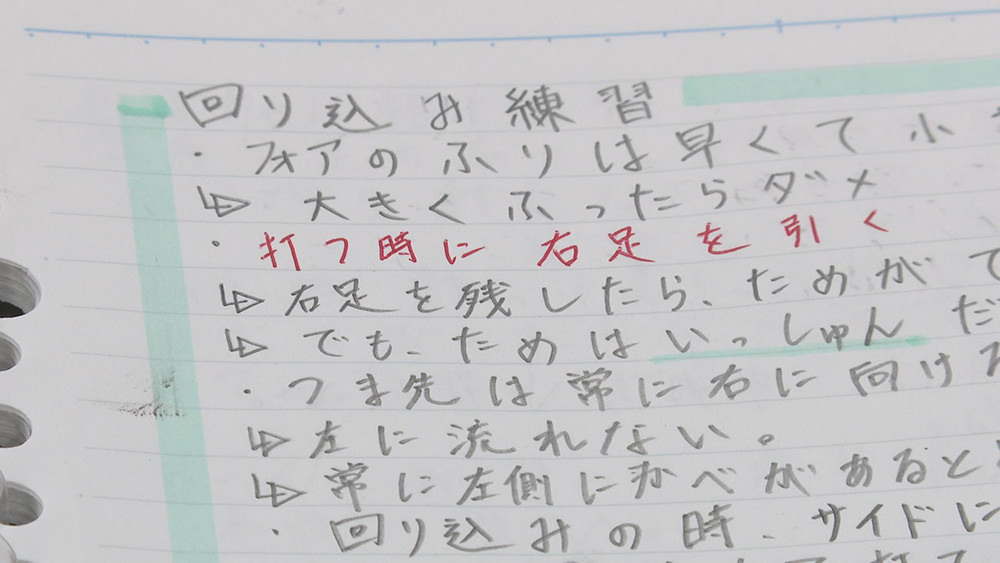 回り込み練習
・フォアのふりは早くて小
↳ 大きくふったらダメ
・打つ時に右足を引く
↳ 右足を残したら、ためがで
↳ でも、ためはいっしゅんだ
・つま先は常に右に向ける
↳ 左に流れない。
↳ 常に左側にかべがあると
・回り込みの時、サイドに